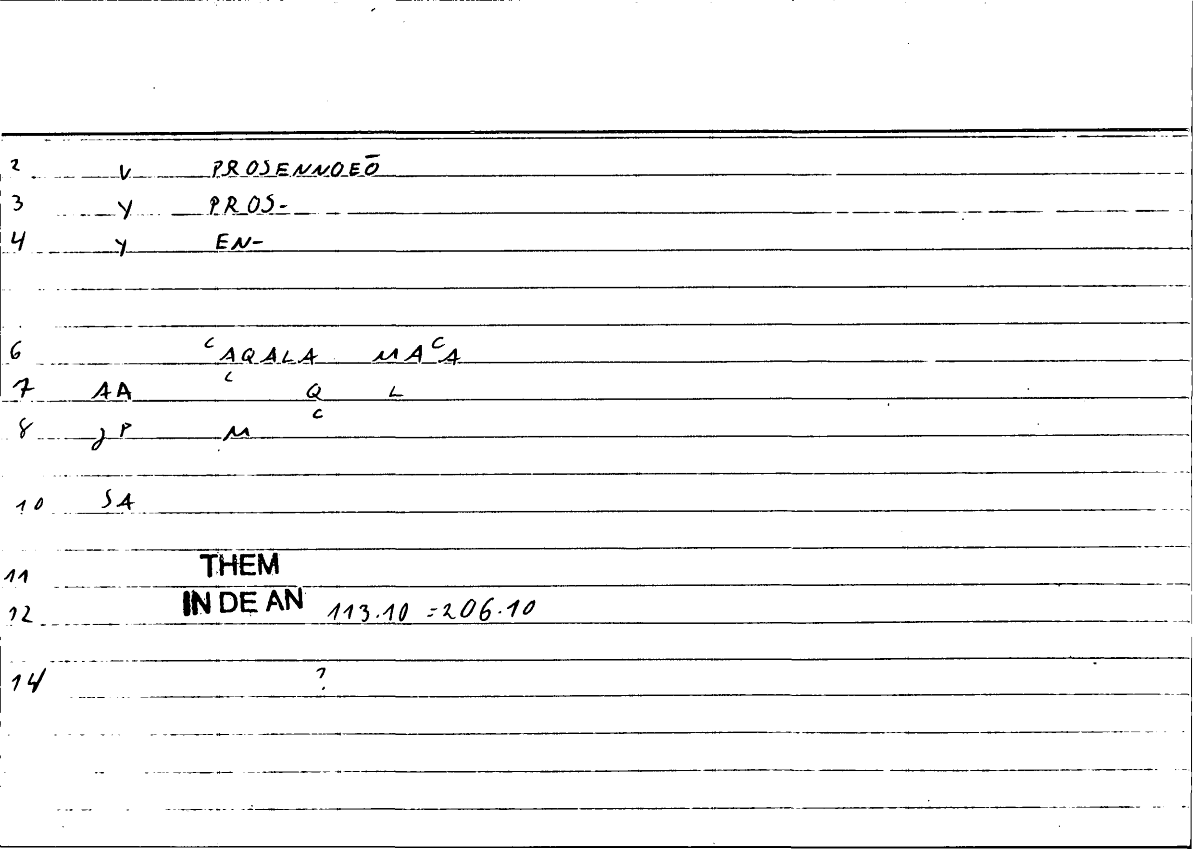 2 V PROSENNOEŌ
3 Y PROS-
4 Y EN-
6 ʿAQALA MAʿA
7 AA ʿ Q L
8 JP M ʿ
10 SA
11 THEM
12 IN DE AN 113.10 = 206.10
14 ?